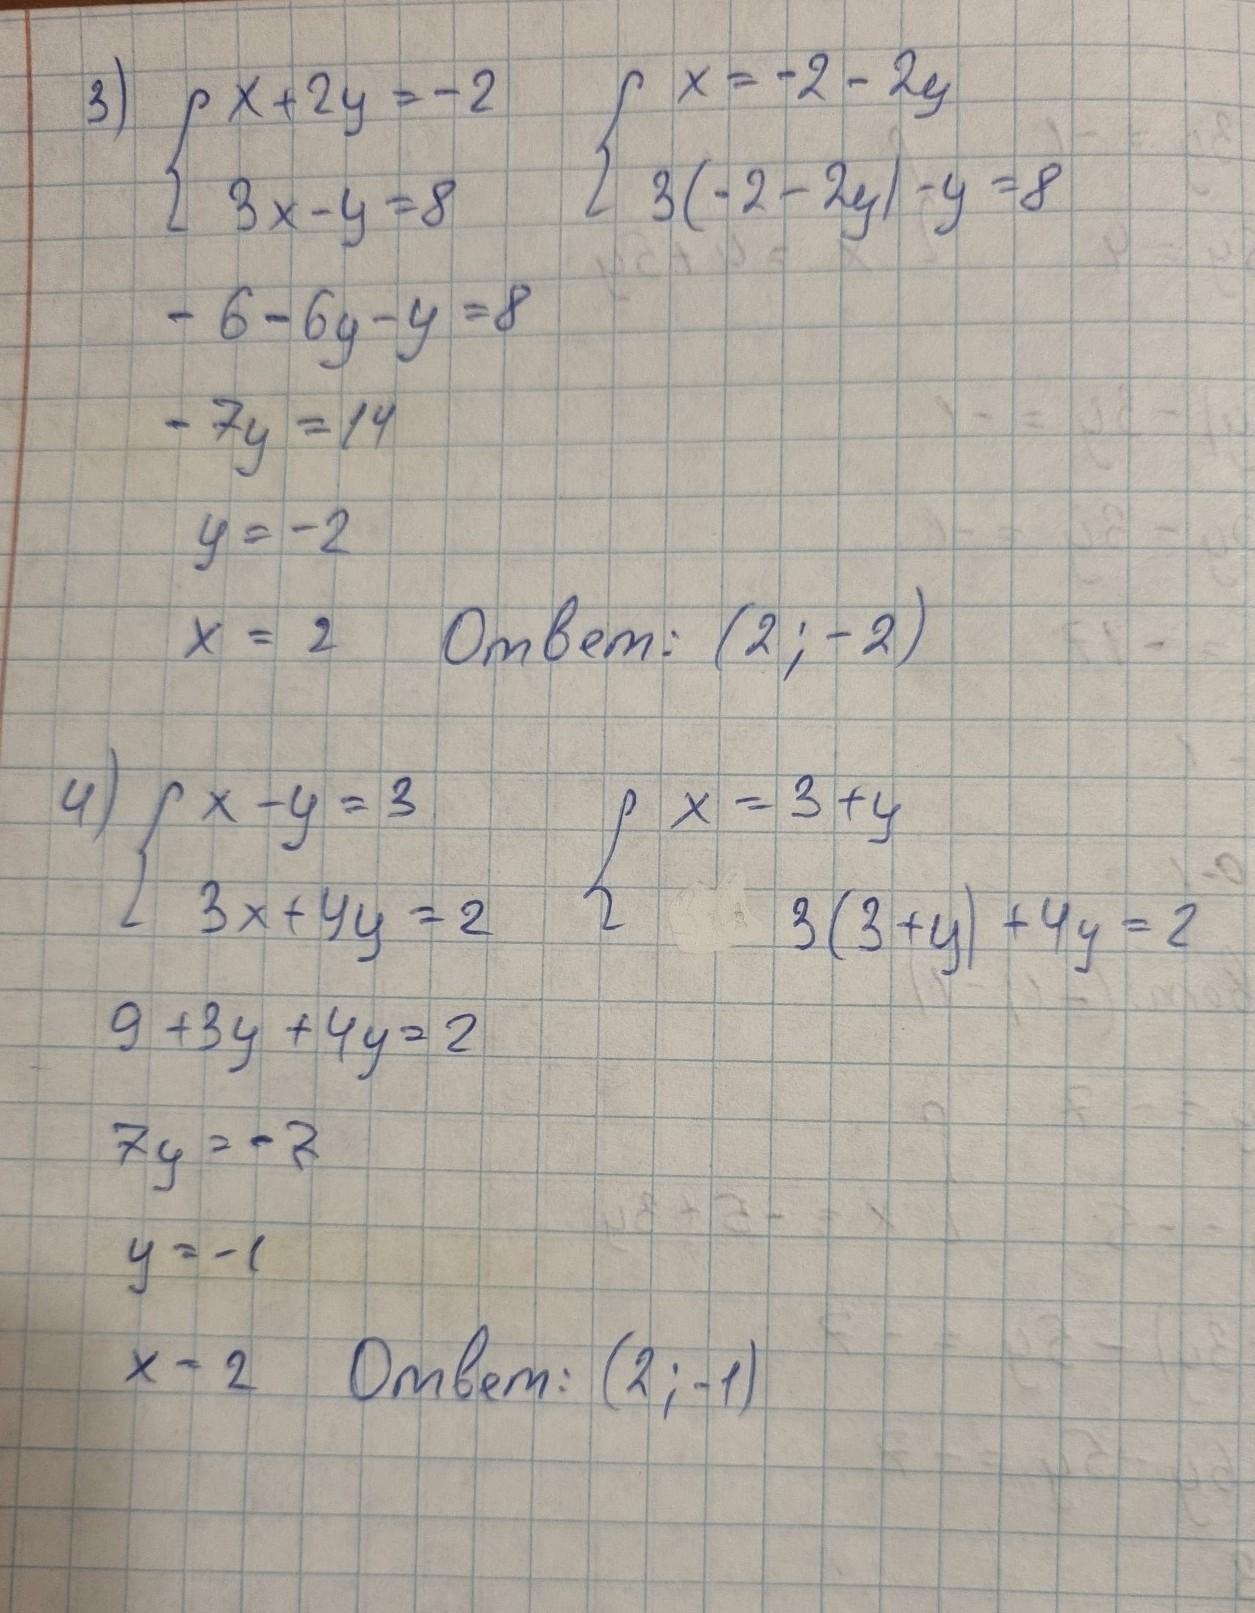 3) { x+2y=-2 { x=-2-2y
3x-y=8 3(-2-2y)-y=8
-6-6y-y=8
-7y=14
y=-2
x=2 Ответ: (2;-2)
4) { x-y=3 { x=3+y
3x+4y=2 3(3+y)+4y=2
9+3y+4y=2
7y=-7
y=-1
x-2 Ответ: (2;-1)